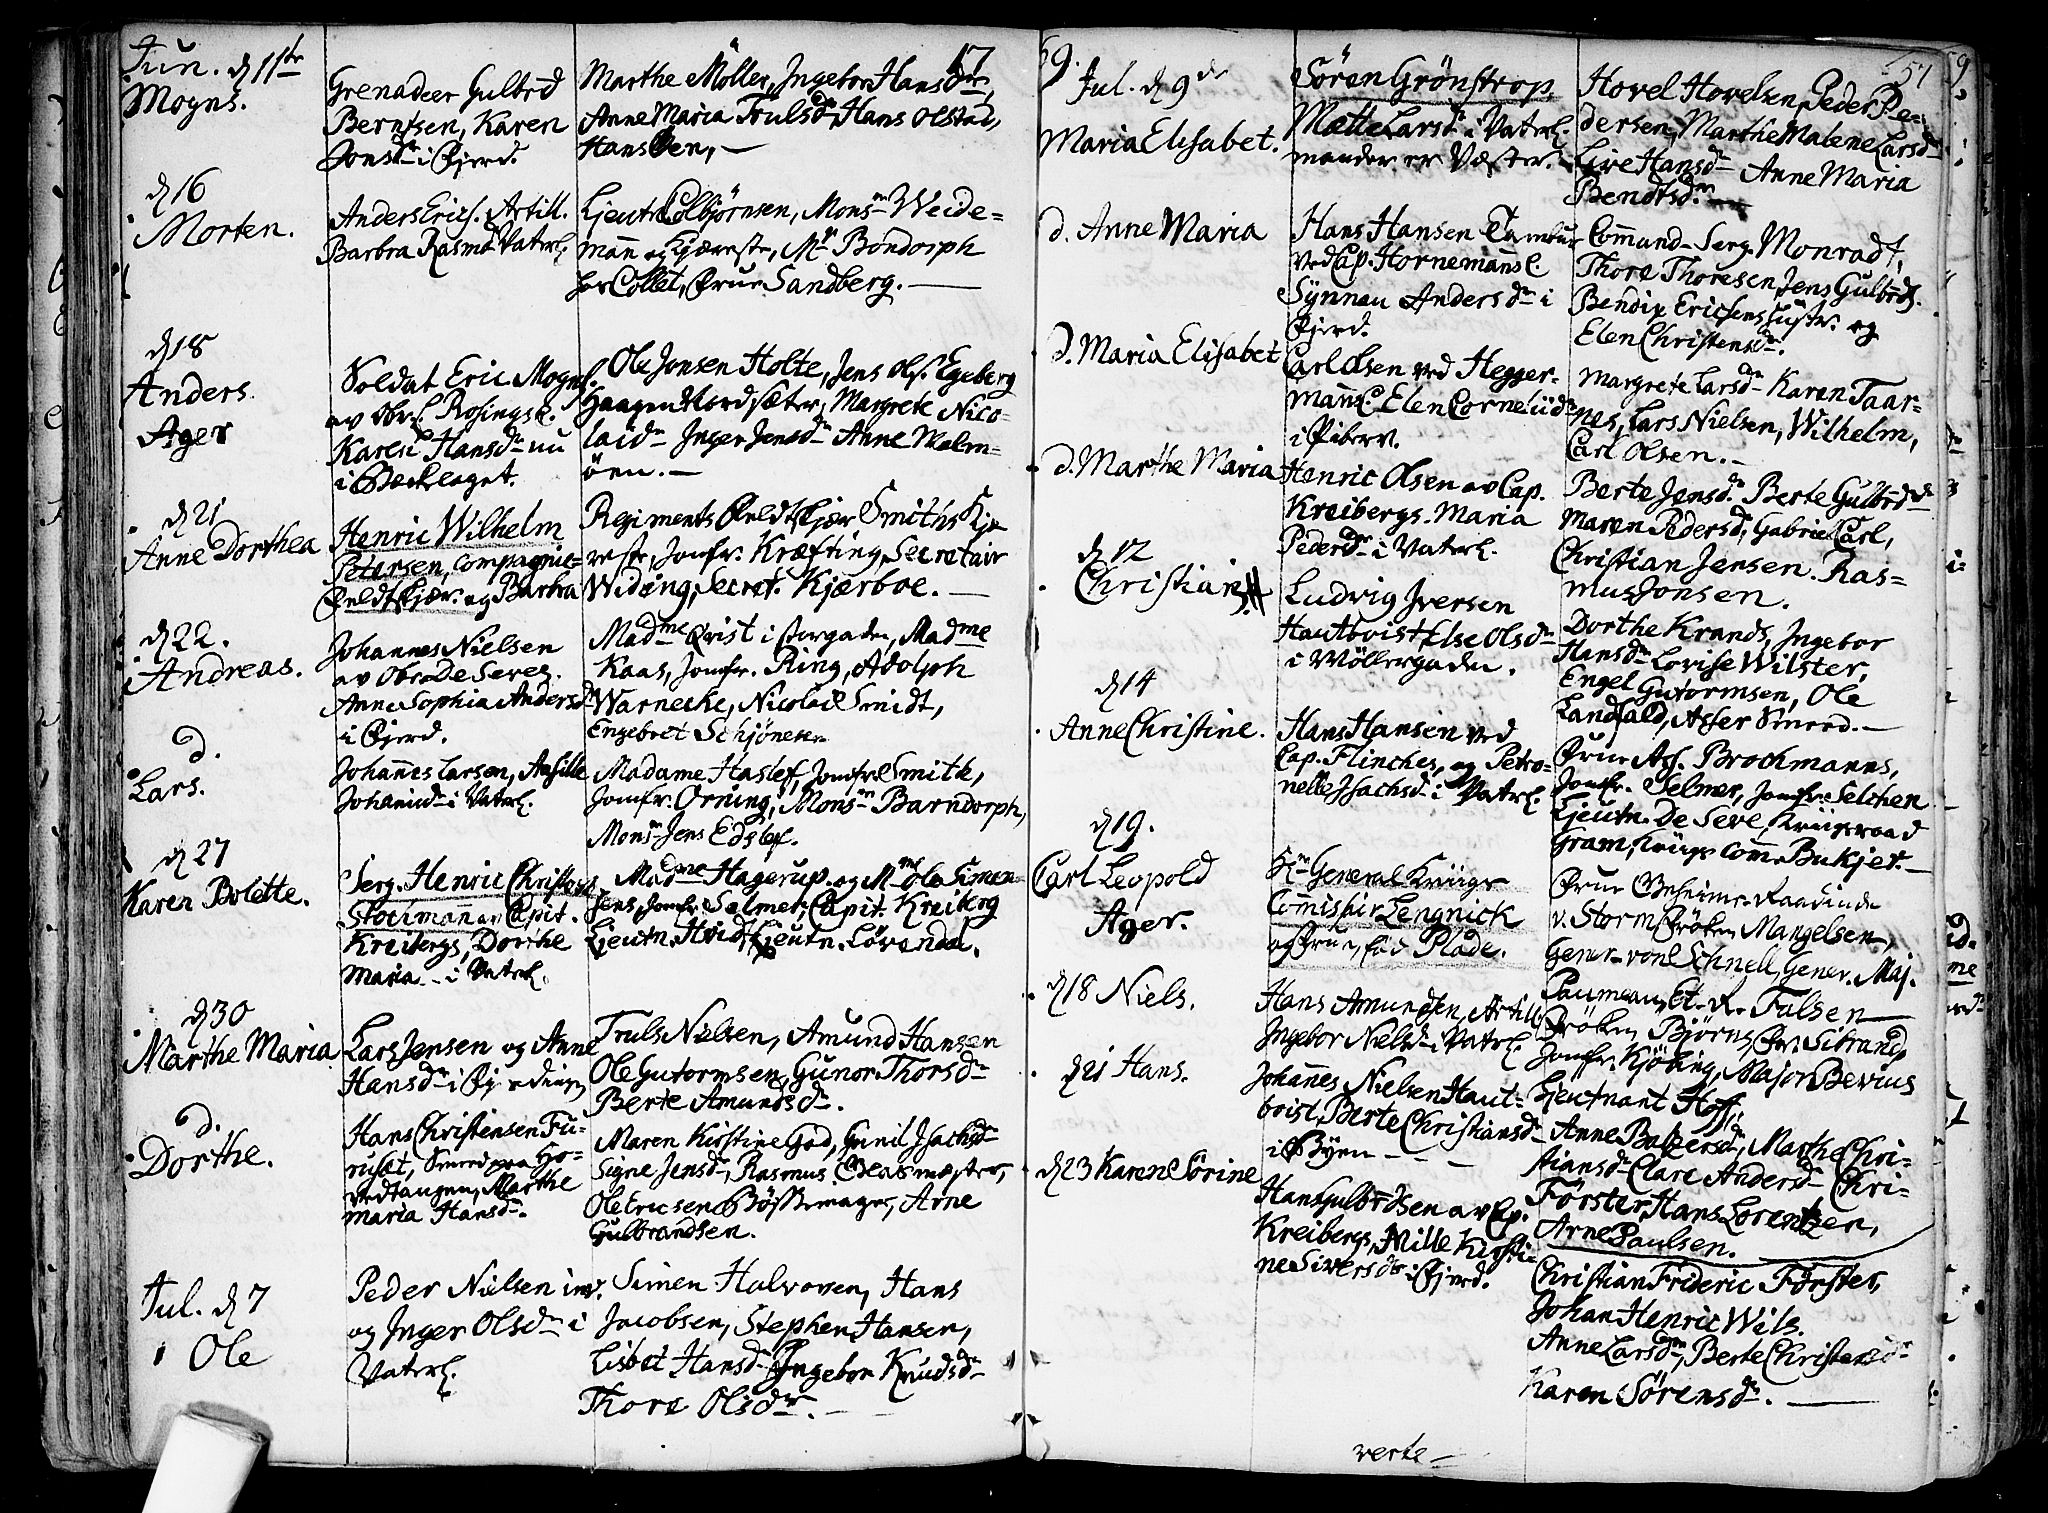 Jun. d 11te
Mogns.
Grenadeer Gulbrd
Berntsen, Karen
Jonsdr i Pjerd.
17
Marthe Möller, Ingebor Hansdr,
Anne Maria Trulsdr, Hans Olstad,
Hans Oen, —
d 16
Morten.
Anders Erics. Artill.
Barbra Rasmd Vaterl.
Ljeutn Colbjörnsen, Monsr Weide=
mann og Kjæreste, Mr Bondorph
hos Collet, Frue Sandberg. —
d 18
Anders.
Ager
Soldat Eric Mogns.
av Obrl. Rosings C.
Karen Hansdr nu
i Becklaget.
Ole Jonsen Holte, Jens Ols. Egeberg
Haagen Nordsæter, Margrete Nico=
laidr Inger Jensdr Anne Malm=
öen. —
d 21
Anne Dorthea
Henric Wilhelm
Petersen, compagnie=
Feldtskjær. og Barbra
Regiments Feldtskjær Smiths Kje
reste, Jomfr. Kræfting, Secretair
Widing, Secret. Kjærboe. —
d 22.
Andreas.
Johannes Nielsen
av Obr. De Seves.
Anne Sophia Andersd
i Pjerd.
Madme Qvist i storgaden, Madme
Kaas, Jomfr. Ring, Adolph
Warnecke, Nicolai Smidt,
Engebret Schjönesen
d.
Lars.
Johannes Larsen, Ansille
Johannsdr i Vaterl.
Madame Haslef, Jomfr. Smith,
Jomfr. Orning, Monsr Barndorph,
Monsr Jens Edslef.
d 27
Karen Bolette.
Serg. Henric Christoph
Stochmann av Capit.
Kreibergs, Dorthe
Maria — i Vaterl.
Madme Hagerup. og Mme Ole Simon=
sens, Jomfr. Selmer, Capit. Kreiberg
Ljeutn. Hvid, Ljeutn. Lövendal.
d 30
Marthe Maria
Lars Jensen og Anne
Hansdr i Pjerdingen
Truls Nielsen, Amund Hansen
Ole Gutormsen, Gunor Thorsdr
Berte Amundsdr.
d.
Dorthe.
Hans Christensen Fu=
ruset, Smed paa Ho=
vedtangen, Marthe
Maria Hansdr.
Maren Kirstine Gad, Gunil Isachsdr
Signe Jensdr, Rasmus Gearsmæster,
Ole Ericsen Bössemager, Arne
Gulbrandsen.
Jul. d 7
Ole
Peder Nielsen inv.
og Inger Olsdr i
Vaterl.
Simen Halvorsen, Hans
Jacobsen, Stephen Hansen,
Lisbet Hansdr Ingebor Knudsdr
Thore Olsdr. —
59.
Jul. d 9de
Maria Elisabet.
Sören Grönstrop
Mætte Larsdr i Vaterl.
57
Hovel Hovelsen, Peder Pe=
dersen, Marthe Malene Larsdr
Live Hansdr Anne Maria
Bendtsdr.
d. Anne Maria
Hans Hansen Tambur
ved Cap. Hornemanns C.
Synnau Andersdr i
Pjerd.
Command. Serg. Monradt,
Thore Thoresen, Jens Gulbrds.
Bendix Ericsens hustr. og
Elen Christensdr.
d. Maria Elisabet
Carl Olsen ved Hegger=
manns C. Elen Corneliidr
i Piberv.
Margrete Larsdr Karen Taar=
nes, Lars Nielsen, Wilhelm,
Carl Olsen. —
d. Marthe Maria
Henric Olsen av Cap.
Kreibergs. Maria
Pedersdr i Vaterl.
Berte Jensdr Berte Gulbrdr
Maren Pedersd, Gabriel Carl,
Christian Jensen. Ras=
mus Jonsen.
d 12
Christian
Ludvig Iversen
Hautboist Else Olsdr
i Möllergaden.
Dorthe Krands, Ingebor
Hansdr Lovise Wilster,
Engel Gutormsen, Ole
Landfald, Asser Smed. —
d 14
Anne Christine.
Hans Hansen ved
Cap. Flinches, og Petro=
nelle Isachsdr i Vaterl.
Frue Ass. Brochmanns,
Jomfr. Selmer, Jomfr. Selchen
Ljeutn. De Seve, Kriigsraad
Gram, Kriigs comm. Bukjer. —
d 19.
Carl Leopold
Ager.
Hr General Kriigs
Comissair Lengnick
og Frue, fød Plade.
Frue Geheime-Raadinde
v. Storm, Fröken Mangelsen,
Gener. von Schnell, Gener. Maj.
Paumeau, Et. R. Falsen
Fröken Björns, Fr. Sibrand,
Jomfr. Kjöbing, Major Bevius
Ljeutnant Hoff.
d 18 Niels.
Hans Amundsen, Artill.
Ingebor Nielsd i Vaterl.
d 21 Hans.
Johannes Nielsen Haut=
boist, Berte Christiansdr
i Byen — —
Anne Balzersdr, Marthe Chri=
stiansdr Clare Andersdr Chri=
Förster, Hans Lorentzen,
Arne Paulsen.
d 23 Karen Sörine
Hans Gulbrdsen av Cp.
Kreibergs, Mille Kirsti=
ne Siversdr i Pjerd.
Christian Frideric Förster,
Johan Henric Wils.
Anne Larsdr, Berte Christensdr
Karen Sörensdr. —
verte —